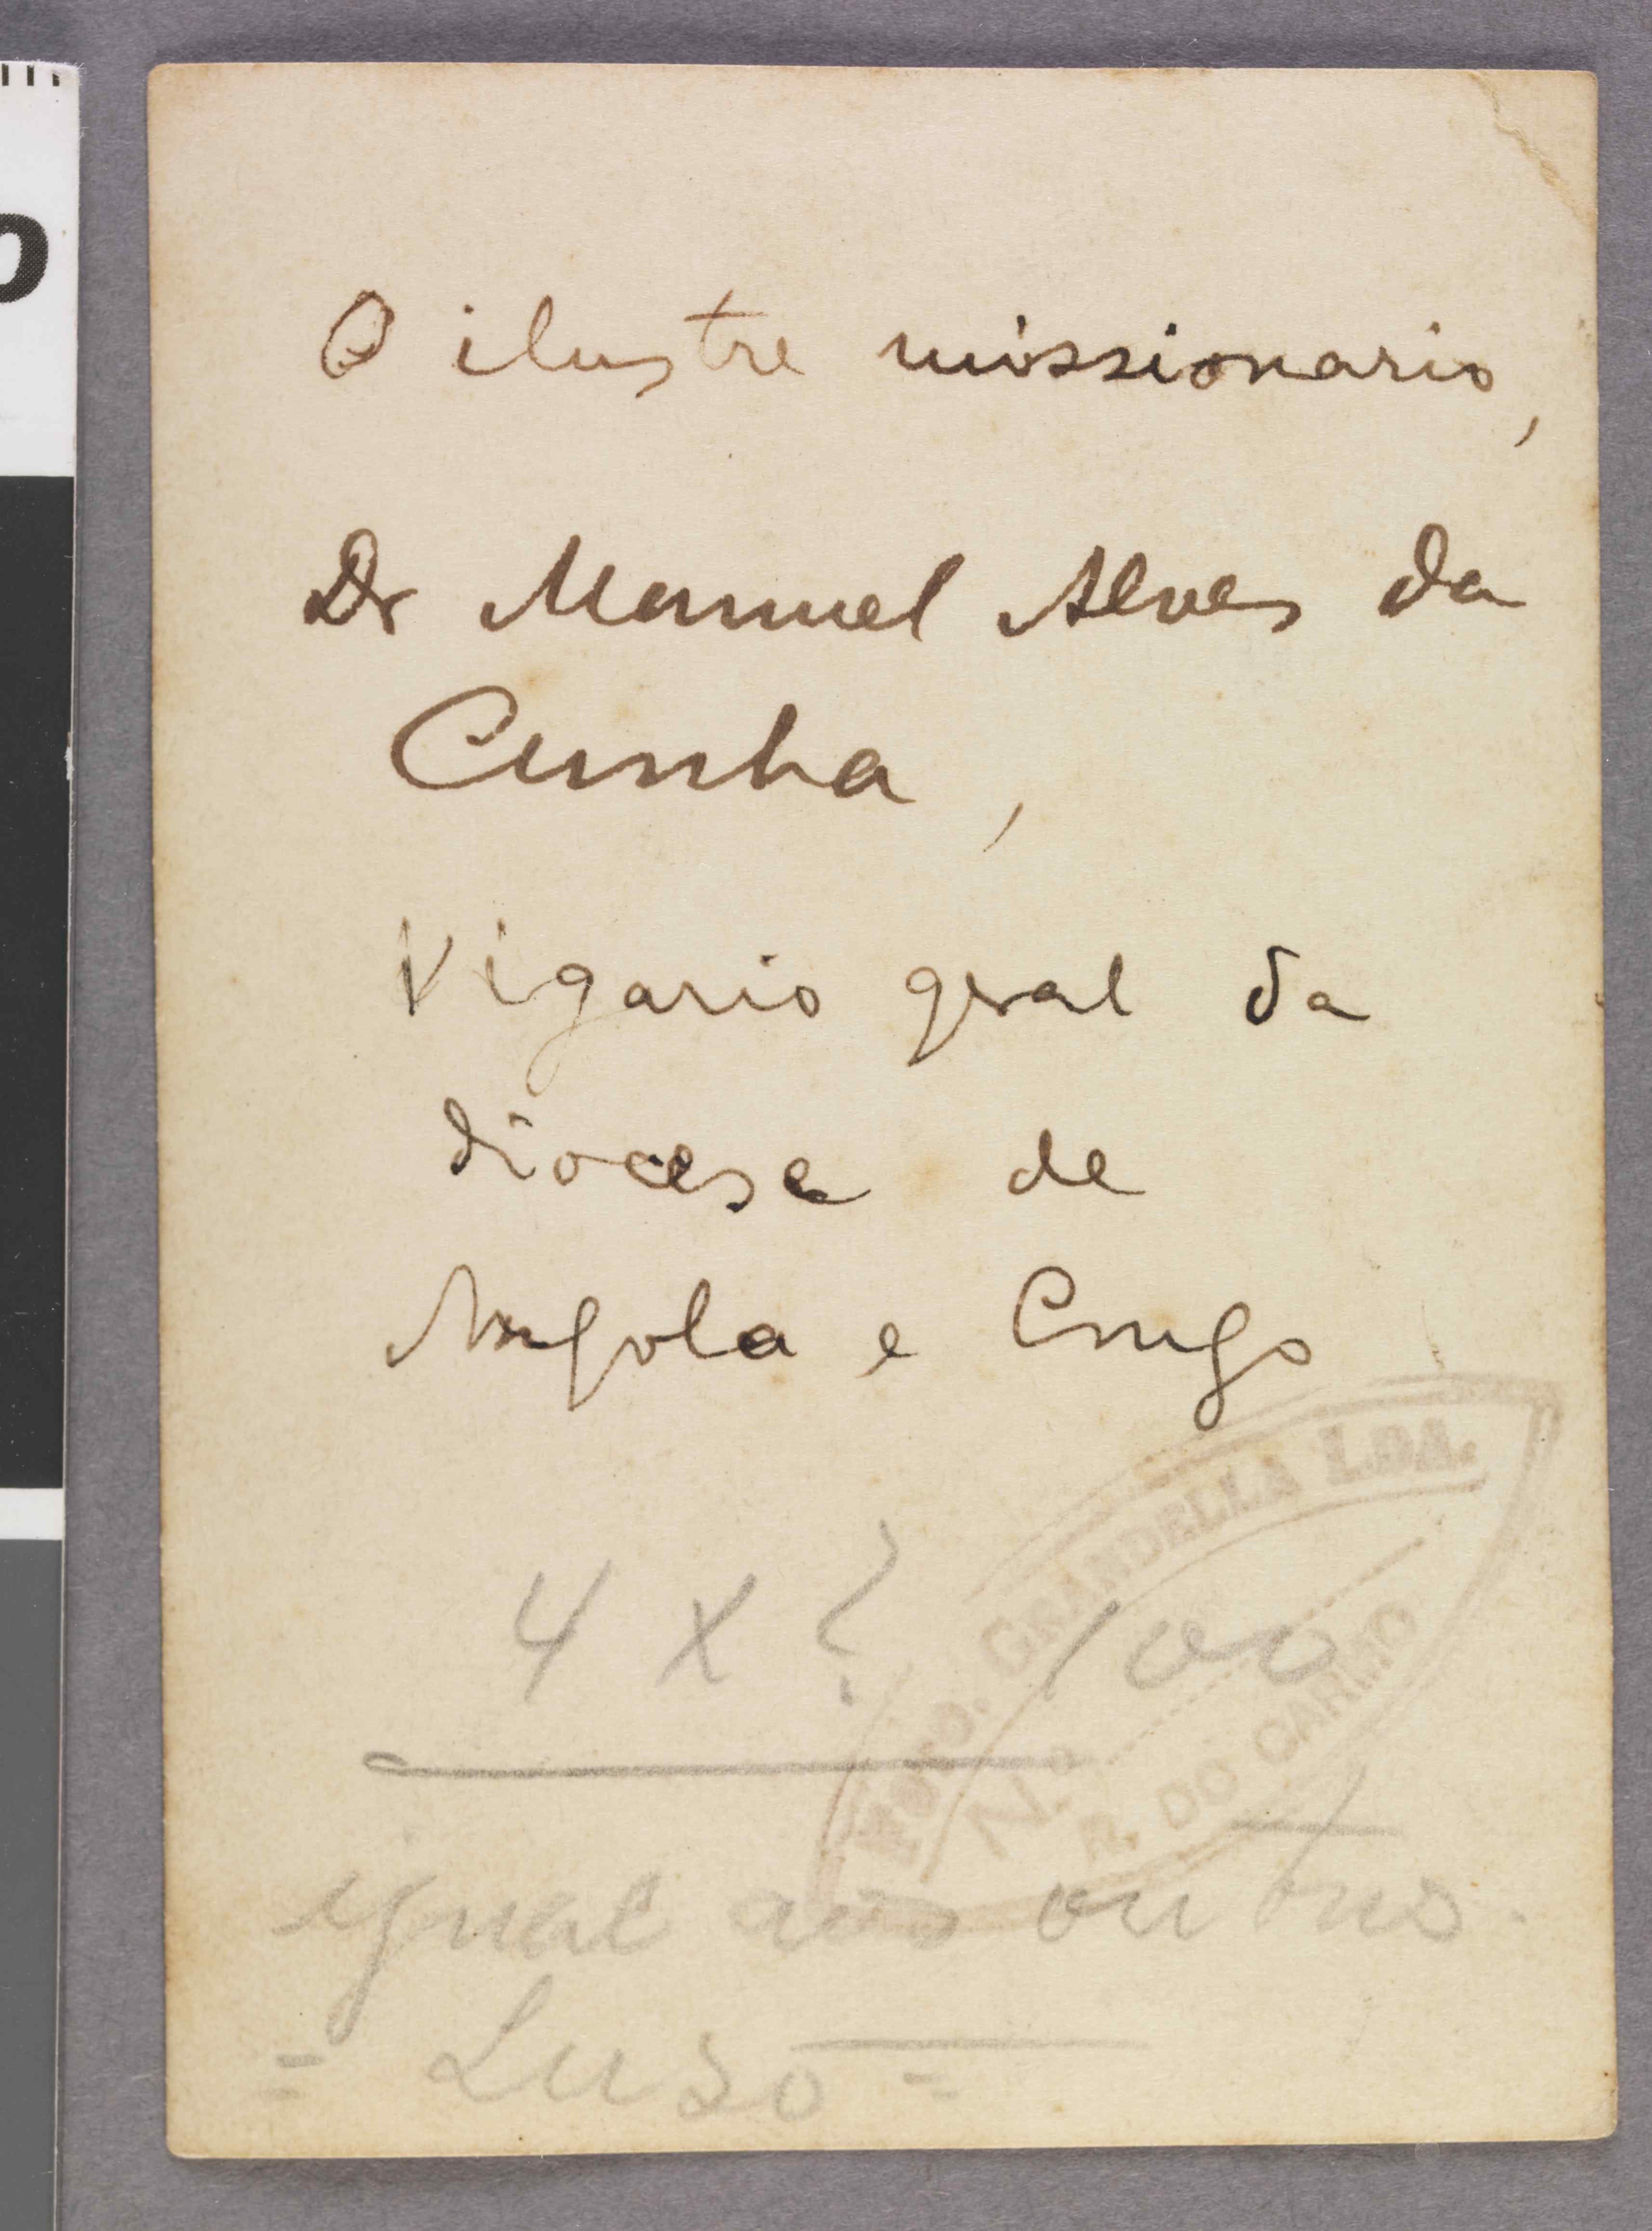 O ilustre missionario,
Dr Manuel Alves da
Cunha,
Vigario geral da
diocese de
Angola e Congo
FOTO. GRANDELLA LDA.
Nº
R. DO CARMO
4 x ? 100
igual aos outros.
= Luso =